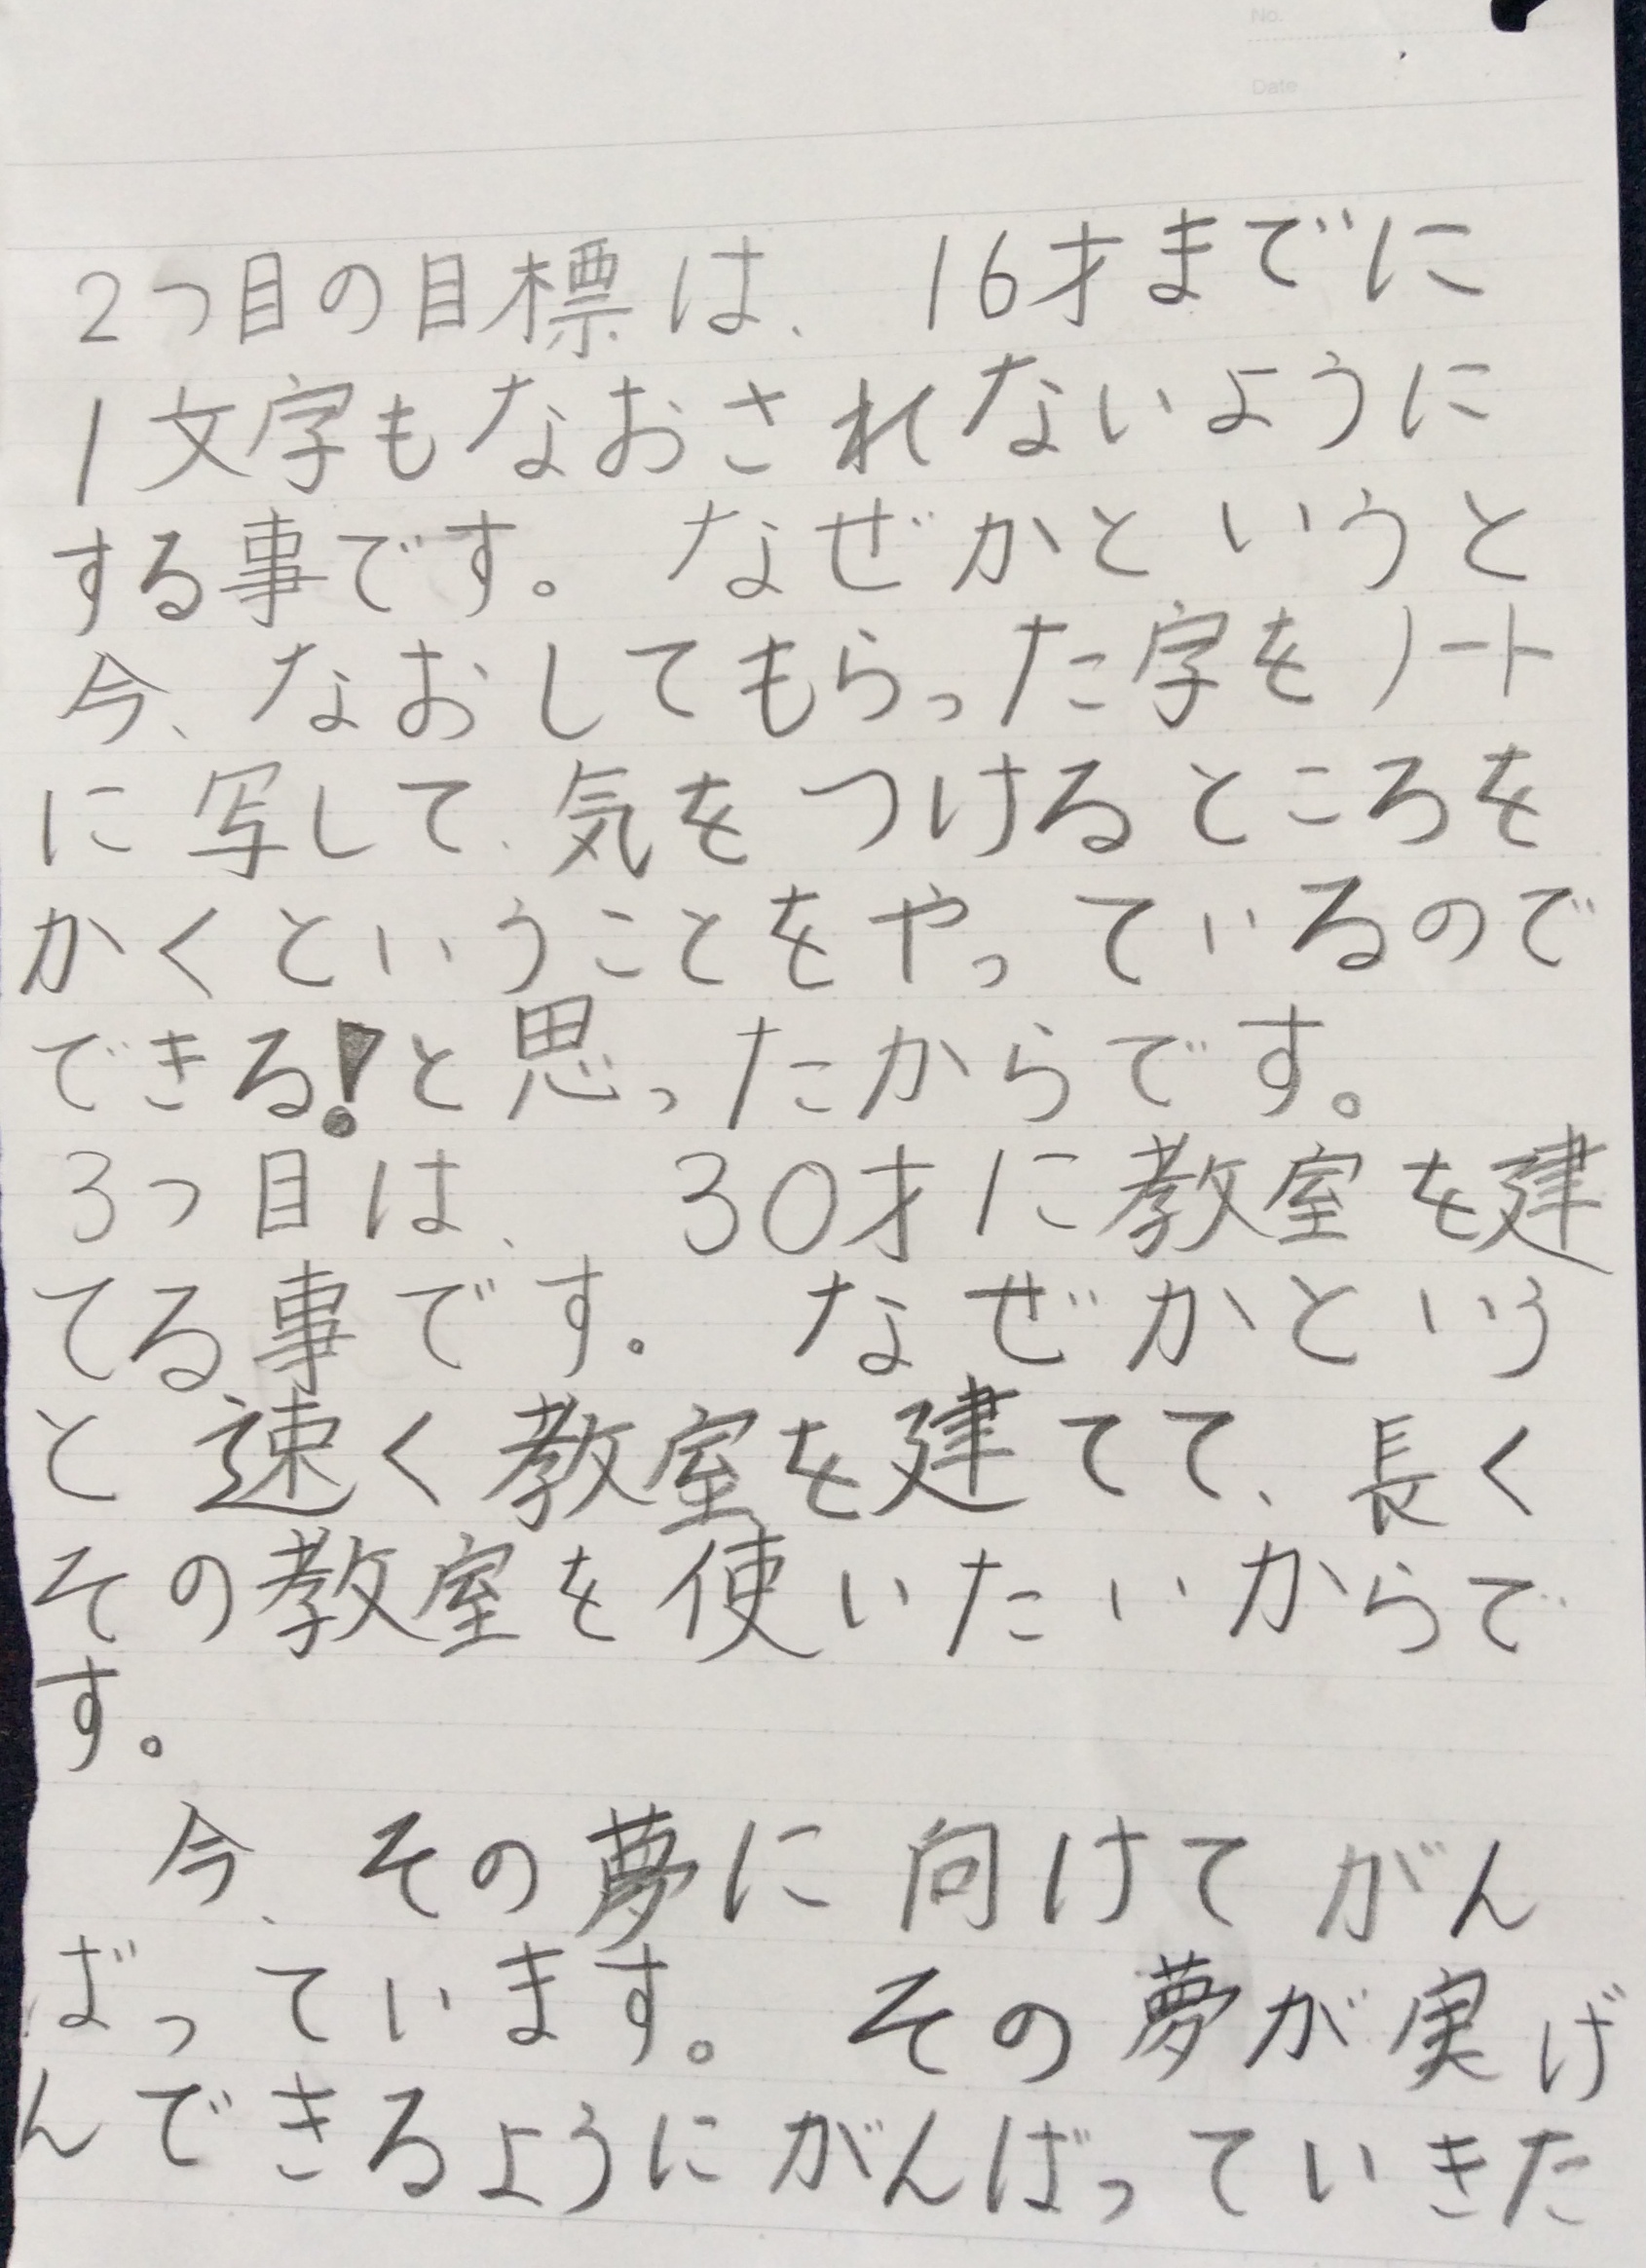 No.
Date
2つ目の目標は、16才までに
1文字もなおされないように
する事です。なぜかというと
今、なおしてもらった字をノート
に写して、気をつけるところを
かくということをやっているので
できる!と思ったからです。
3つ目は、30才に教室を建
てる事です。なぜかという
と速く教室を建てて、長く
その教室を使いたいからで
す。
今、その夢に向けてがん
ばっています。その夢が実げ
んできるようにがんばっていきた